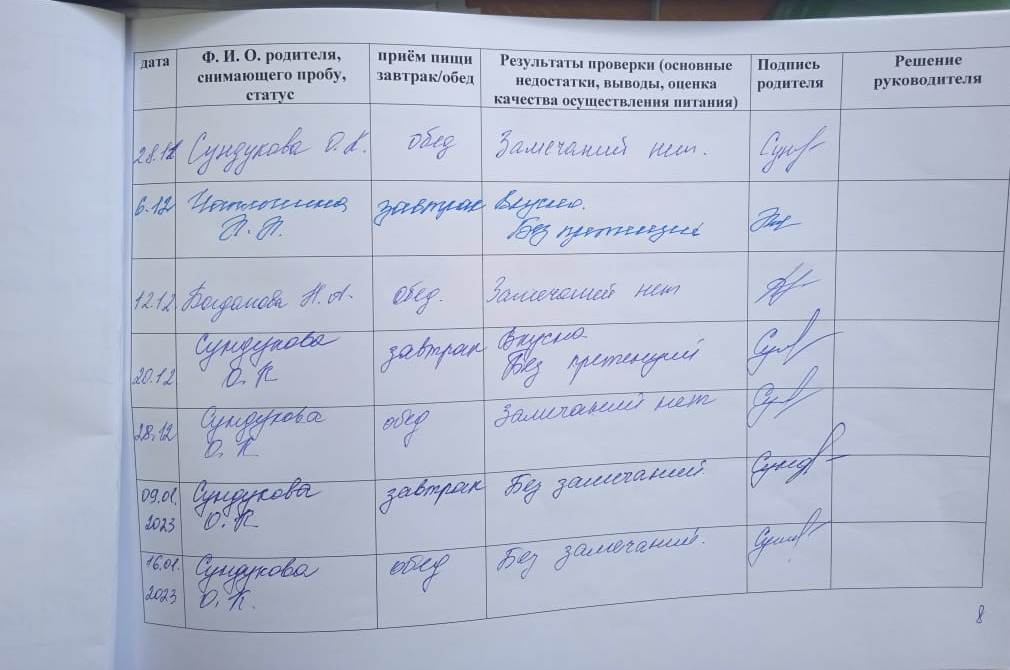 дата
Ф. И. О. родителя,
снимающего пробу,
статус
приём пищи
завтрак/обед
Результаты проверки (основные
недостатки, выводы, оценка
качества осуществления питания)
Подпись
родителя
Решение
руководителя
Сундукова О. К.
обед
Замечаний нет.
6.12
завтрак
Вкусно.
Без претензий
12.12
Богданова Н. А.
обед.
Замечаний нет
20.12
Сундукова
О. К
завтрак
Вкусно
Без претензий
28.12
Сундукова
О. К
обед
Замечаний нет
09.01.
2023
Сундукова
О. К
завтрак
Без замечаний
16.01.
2023
Сундукова
О. К.
обед
Без замечаний.
8